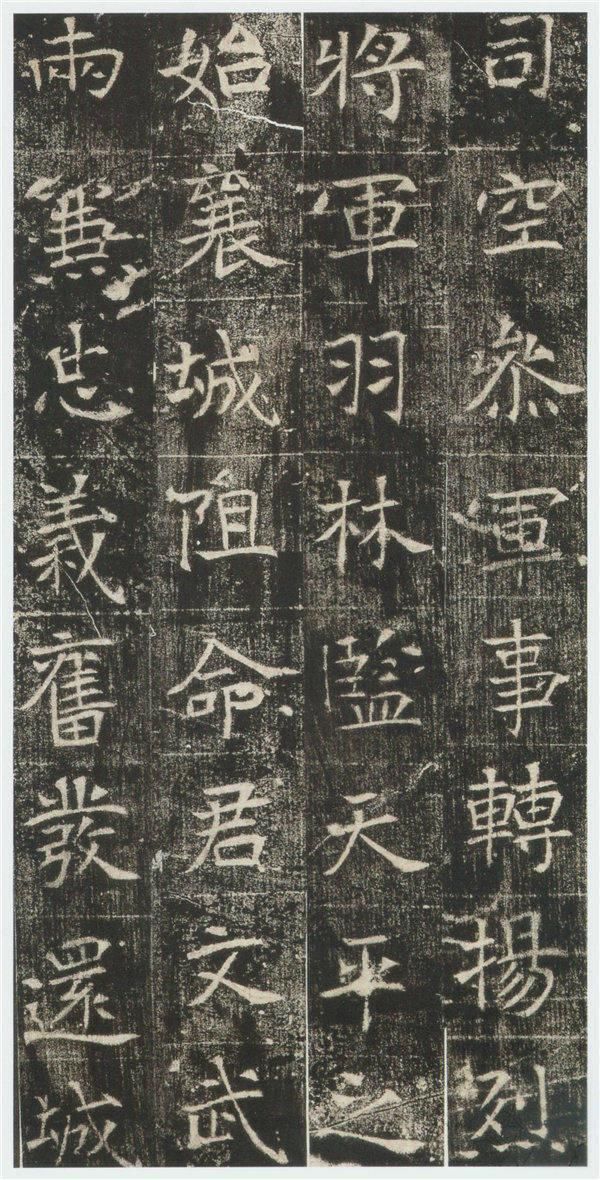 司空叅軍事轉揚烈
將軍羽林監天平之
始襄城阻命君文武
兩兼忠義奮發還城